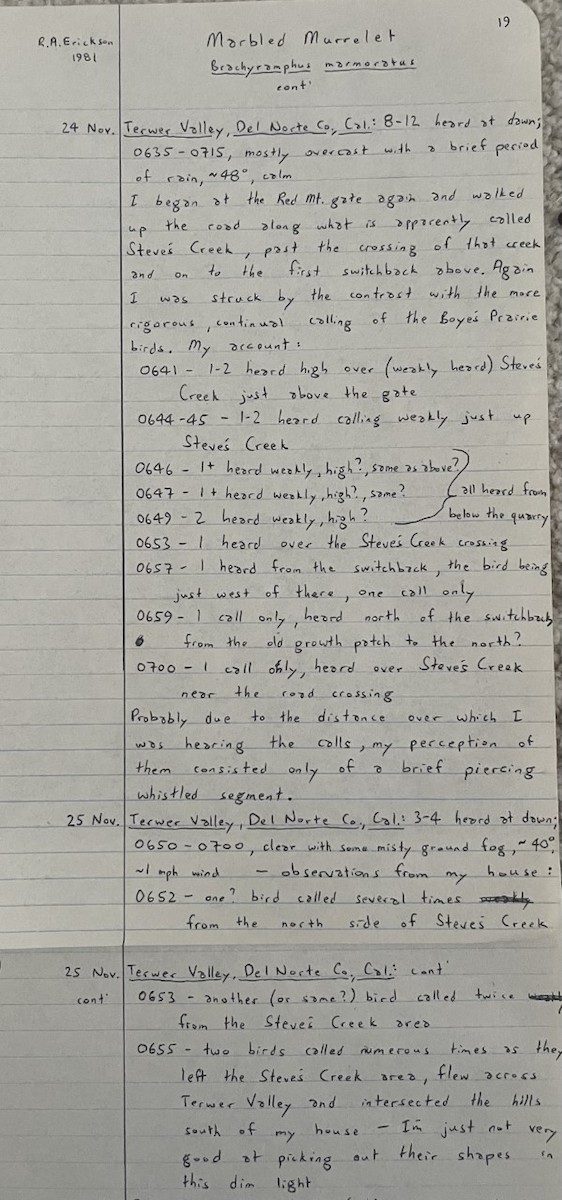 19
R.A. Erickson
1981
Marbled Murrelet
Brachyramphus marmoratus
cont'
24 Nov. Terwer Valley, Del Norte Co., Cal.: 8-12 heard at dawn;
0635-0715, mostly overcast with a brief period
of rain, ~48°, calm
I began at the Red Mt. gate again and walked
up the road along what is apparently called
Steve's Creek, past the crossing of that creek
and on to the first switchback above. Again
I was struck by the contrast with the more
rigorous, continual calling of the Boyes Prairie
birds. My account:
0641 - 1-2 heard high over (weakly heard) Steve's
Creek just above the gate
0644-45 - 1-2 heard calling weakly just up
Steve's Creek
0646 - 1+ heard weakly, high?, same as above?
0647 - 1+ heard weakly, high?, same?
0649 - 2 heard weakly, high?
all heard from
below the quarry
0653 - 1 heard over the Steve's Creek crossing
0657 - 1 heard from the switchback, the bird being
just west of there, one call only
0659 - 1 call only, heard north of the switchback,
from the old growth patch to the north?
0700 - 1 call only, heard over Steve's Creek
near the road crossing
Probably due to the distance over which I
was hearing the calls, my perception of
them consisted only of a brief piercing
whistled segment.
25 Nov. Terwer Valley, Del Norte Co., Cal.: 3-4 heard at dawn;
0650-0700, clear with some misty ground fog, ~40°,
~1 mph wind - observations from my house:
0652 - one? bird called several times weakly
from the north side of Steve's Creek
25 Nov. Terwer Valley, Del Norte Co., Cal.: cont'
cont' 0653 - another (or same?) bird called twice
from the Steve's Creek area
0655 - two birds called numerous times as they
left the Steve's Creek area, flew across
Terwer Valley and intersected the hills
south of my house - I'm just not very
good at picking out their shapes in
this dim light